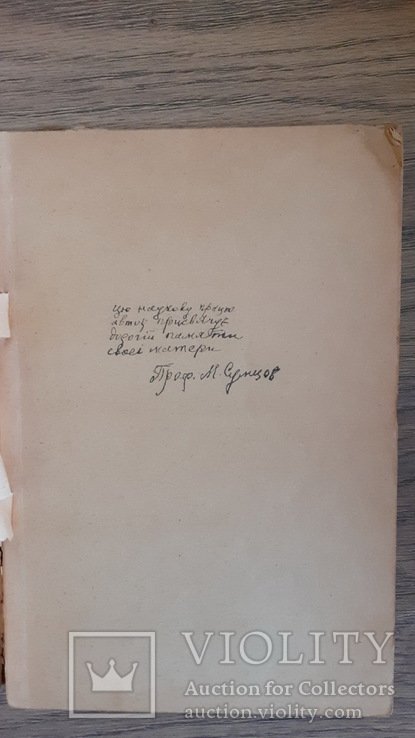 цю наукову працю
автор присвячує
дорогій памяти
своєї матери
Проф. М. Сумцов
VIOLITY
Auction for Collectors
auction.violity.com